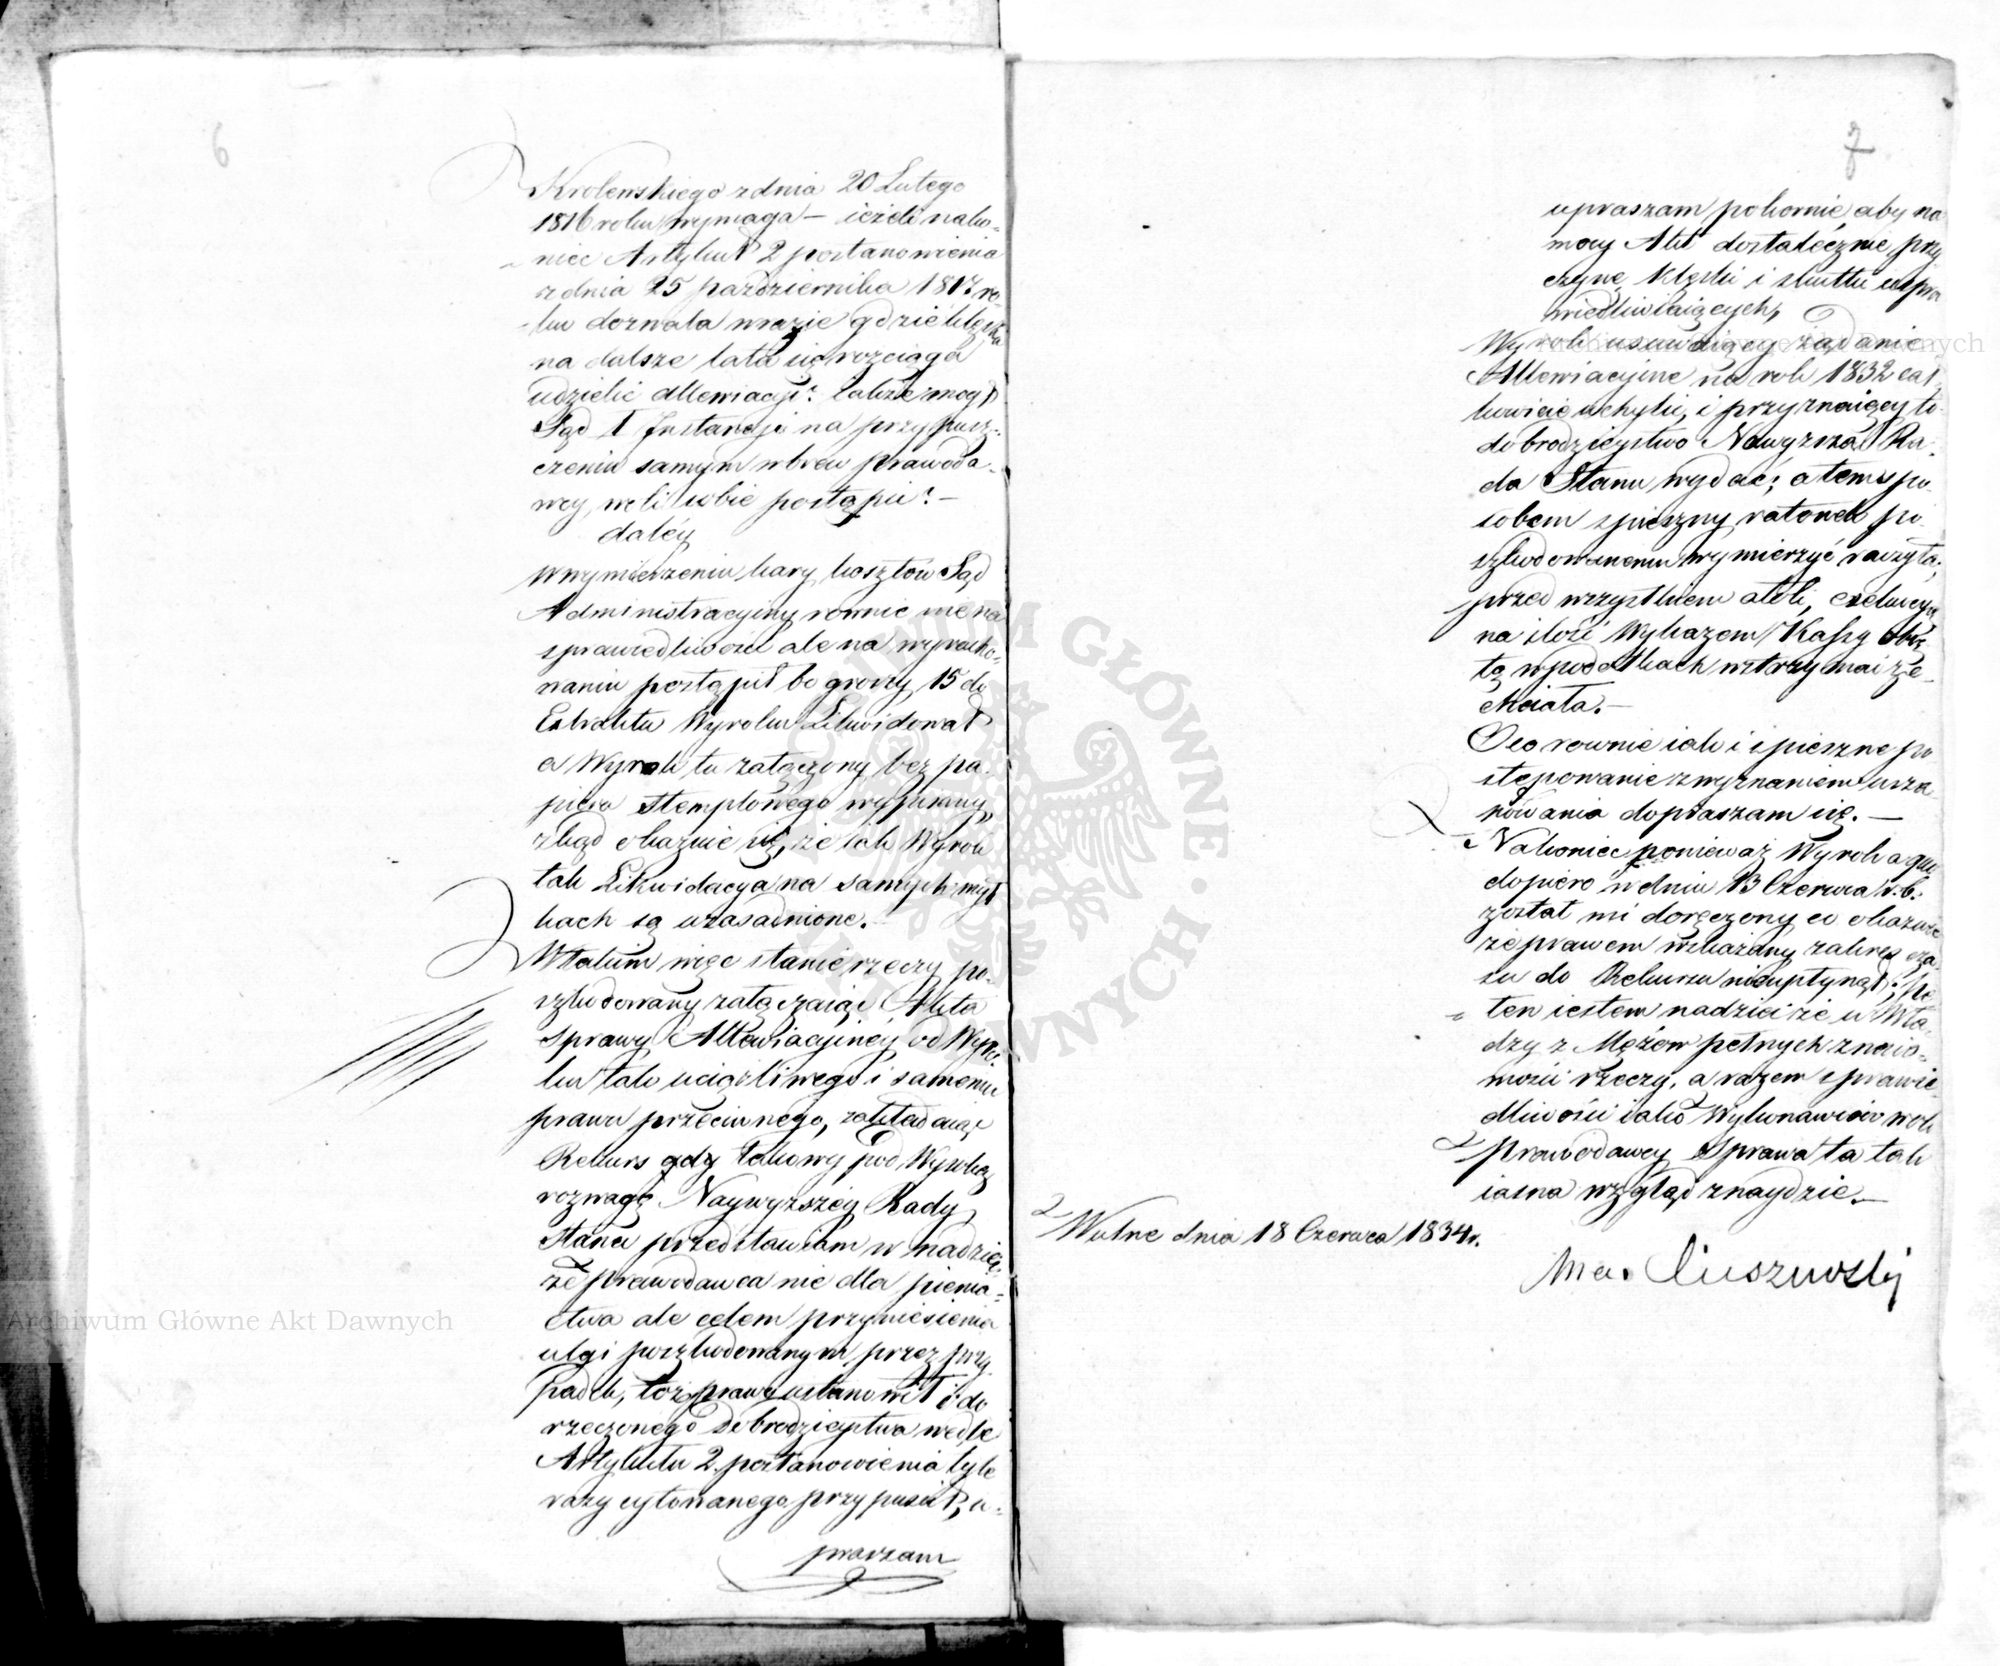 6
Krolewskiego z dnia 20 Lutego
1816 roku wymaga — ieżeli nako-
niec Artykuł 2 postanowienia
z dnia 25 października 1817 ro-
ku dozwala w razie gdzie klęska
na dalsze lata się rozciąga
udzielić allewiacyi? także mógł
Sąd I Instancji na przypusz-
czeniu samym wbrew prawoda-
wcy, woli sobie postąpić? —
daléy
W wymierzeniu kary kosztów Sąd
Administracyiny rownie nie na
sprawiedliwości ale na wyracho-
waniu postąpił bo groszy 15 do
Extraktu Wyroku Likwidował
a Wyrok tu załączony bez pa-
pieru stemplowego wypisany,
zkąd okazuie się, że iak Wyrok
tak Likwidacya na samych mył
kach są uzasadnione.
W takim więc stanie rzeczy po-
szkodowany załączaiąc Akta
sprawy Allewiacyinéy od Wyro
ku tak uciążliwego i samemu
prawu przeciwnego, zakładaiąc
Rekurs gdy takowy pod Wysoką
rozwagę Naywyższéy Rady
Stanu przedstawiam w nadziei,
że prawodawca nie dla pienia-
ctwa ale celem przyniesienia
ulgi poszkodowanym przez przy
padek, toż prawo ustanowił i do
rzeczonego dobrodzieystwa wedle
Artykułu 2 postanowienia tyle
razy cytowanego przypuścił, u-
praszam
7
upraszam pokornie aby na
mocy Akt dostatecznie przy
czynę klęski i skutku uspra
wiedliwiaiących,
Wyrok usuwaiący żądanie
Allewiacyine na rok 1832 cał
kowicie uchylić, i przyznaiący to
dobrodzieystwo Naywyższa Ra-
da Stanu wydać; a tem spo-
sobem spieszny ratunek po
szkodowanemu wymierzyć raczyła;
przed wszystkiem atoli, exekucyą
na ilość Wykazem Kassy obię
tą w podatkach wstrzymać ze-
chciała. —
O co rownie iak i spieszne po
stępowanie z wyznaniem usza
nowania dopraszam się. —
Nakoniec ponieważ Wyrok a quo
dopiero w dniu 13 Czerwca r.b.
został mi doręczony co okazuie
że prawem wskazany zakres cza
su do Rekursu nieupłynął; pe-
ten iestem nadziei że u Wła-
dzy z Mężów pełnych znaio-
mości rzeczy, a razem sprawie-
dliwości iako Wykonawców woli
prawodawcy sprawa ta tak
iasna wzgląd znaydzie. —
dnia 18 Czerwca 1834 r.
Archiwum Główne Akt Dawnych
Archiwum Główne Akt Dawnych
ARCHIWUM GŁÓWNE · AKT DAWNYCH ·